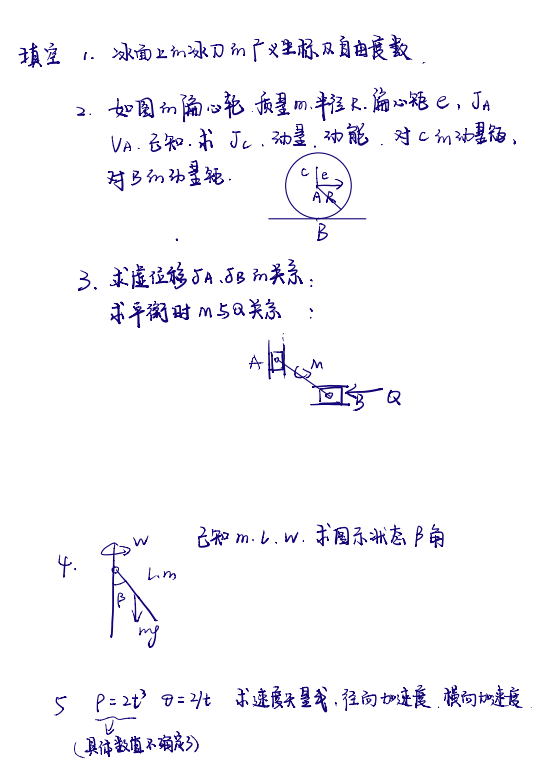 填空 1. 冰面上的冰刀的广义坐标及自由度数.
2. 如图的偏心轮 质量m.半径R.偏心矩e, JA
VA.已知.求 JC.动量.动能.对C的动量矩,
对B的动量矩.
C e
A R
B
3. 求虚位移δA、δB的关系:
求平衡时M与Q关系 :
A M
B Q
已知m.L.W.求图示状态β角
4. W
L,m
β
mg
5 ρ=2t³ θ=2/t 求速度矢量式,径向加速度.横向加速度.
(具体数值不确定了)